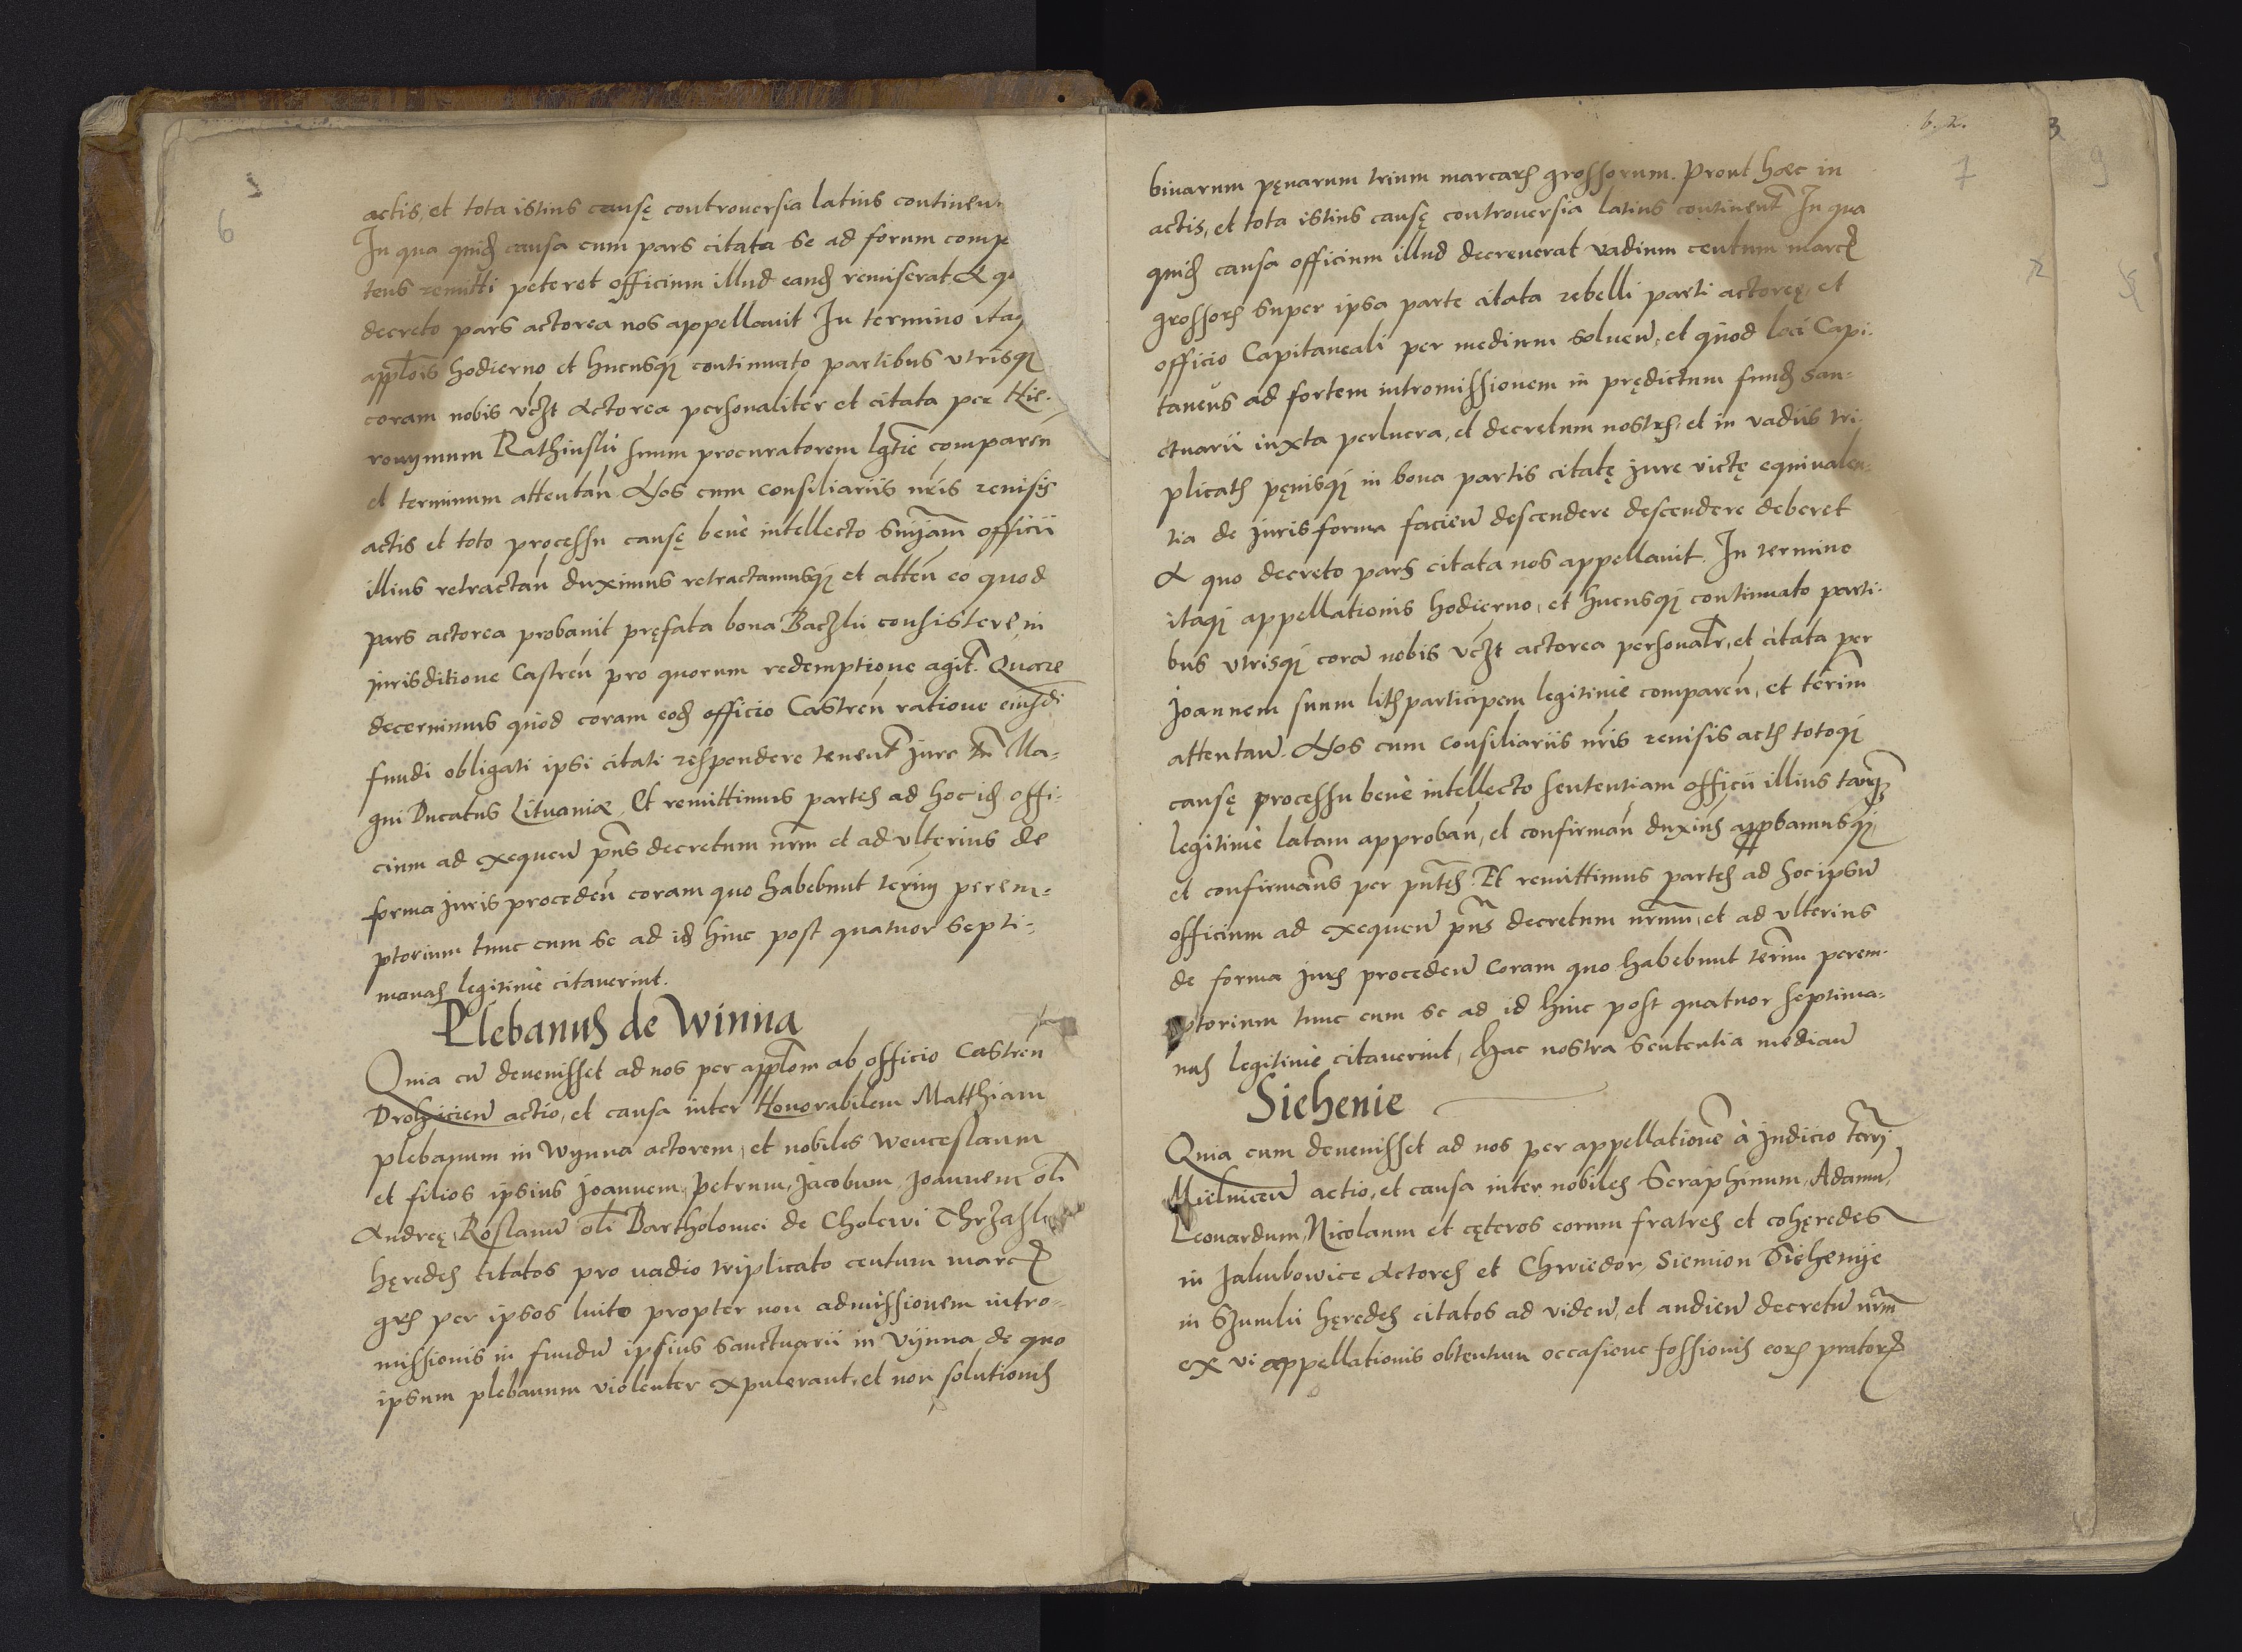 6
actis, et tota istius causę controuersia latius continen
In qua quid causa cum pars citata se ad forum compe
tens remitti peteret officium illud eand remiserat A q
decreto pars actorea nos appellauit In termino itaq
applois hodierno et hucusq continuato partibus vtrisq
coram nobis vczt Actorea personaliter et citata per Hie-
ronymum Rathinski suum procuratorem lgtie comparen
et terminum attentan Nos cum consiliariis nris reuisis
actis et toto processu causę benè intellecto snyam officii
illius retractan duximus retractamusq et atten eo quod
pars actorea probauit pręfata bona Baczki consistere in
jurisditione Castren pro quorum redemptione agit. Quare
decernimus quod coram eod officio Castren ratione eiusdi
fundi obligati ipsi citati respondere tenent jure tn Ma-
gni Ducatus Lituaniæ Et remittimus partes ad hoc id offi-
cium ad exequen pns decretum nrm et ad vlterius de
forma juris proceden coram quo habebunt termi perem-
ptorium tunc cum se ad id hinc post quatuor septi-
manas legitimè citauerint.
Plebanus de Winna
Quia cu deuenisset ad nos per applom ab officio Castren
Drohicien actio, et causa inter Honorabilem Matthiam
plebanum in Wynna actorem, et nobiles Wenceslaum
et filios ipsius Joannem, Petrum, Jacobum, Joannem oli
Andreę, Roslanu oli Bartholomei de Cholewi Thrzask
hęredes citatos pro vadio triplicato centum marc
grs per ipsos luito propter non admissionem intro-
missionis in fundu ipsius sanctuarii in Vynna de quo
ipsum plebanum violenter expulerant, et non solutionis
6. 2.
3
7
9
binarum pęnarum trium marcars grossorum. Prout hæc in
actis, et tota istius causę controuersia latius continent In qua
quid causa officium illud decreuerat vadium centum marc
grossors super ipsa parte citata rebelli parti actoreę, et
officio Capitaneali per medium soluen, et quod loci Capi-
taneus ad fortem intromissionem in prędictum fund san-
ctuarii iuxta perlucra, et decretum nostrs, et in vadiis tri-
plicats pęnisq in bona partis citatę jure victę equiualen-
tia de juris forma facien descendere descendere deberet
A quo decreto pars citata nos appellauit. In termino
itaq appellationis hodierno, et hucusq continuato parti-
bus vtrisq cora nobis vczt actorea personalr, et citata per
Joannem suum litsparticipem legitimè comparen, et termi
attentan. Nos cum consiliariis nris reuisis acts totoq
causę processu benè intellecto sententiam officii illius tanq
legitimè latam approban, et confirman duxims approbamusq
et confirmans per pntes. Et remittimus partes ad hoc ipsu
officium ad exequen pns decretum nrmm, et ad vlterius
de forma jurs proceden coram quo habebunt termi perem-
ptorium tunc cum se ad id hinc post quatuor septima-
nas legitimè citauerint, Hac nostra sententia median
Siehenie
Quia cum deuenisset ad nos per appellatione à judicio terri
Mielnicen actio, et causa inter nobiles Seraphinum, Adamu,
Leonardum, Nicolaum et cęteros eorum fratres et cohęredes
in Jakubowice Actores et Chwiedor, Siemion Siehenije
in Szumki hęredes citatos ad viden, et audien decretu nrm
ex vi appellationis obtentum occasione fossionis eors prators